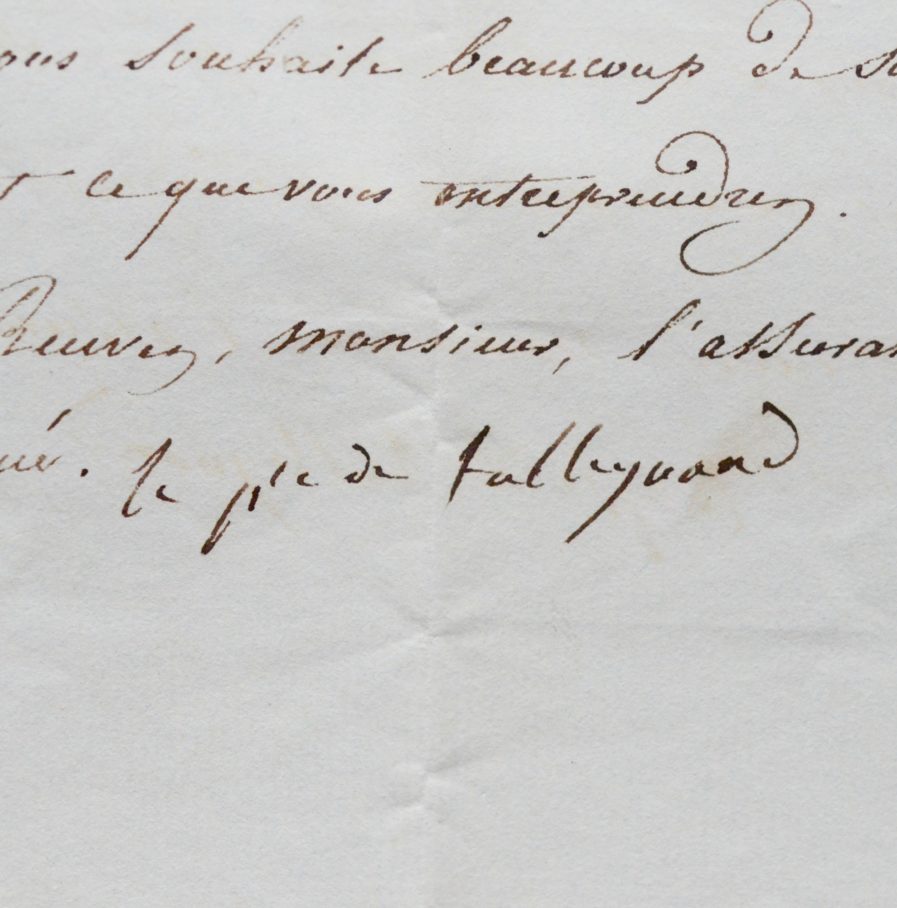 ous souhaite beaucoup de su
t ce que vous entreprendrez.
Recevez, monsieur, l'assuran
ué. le p'ce de talleyrand